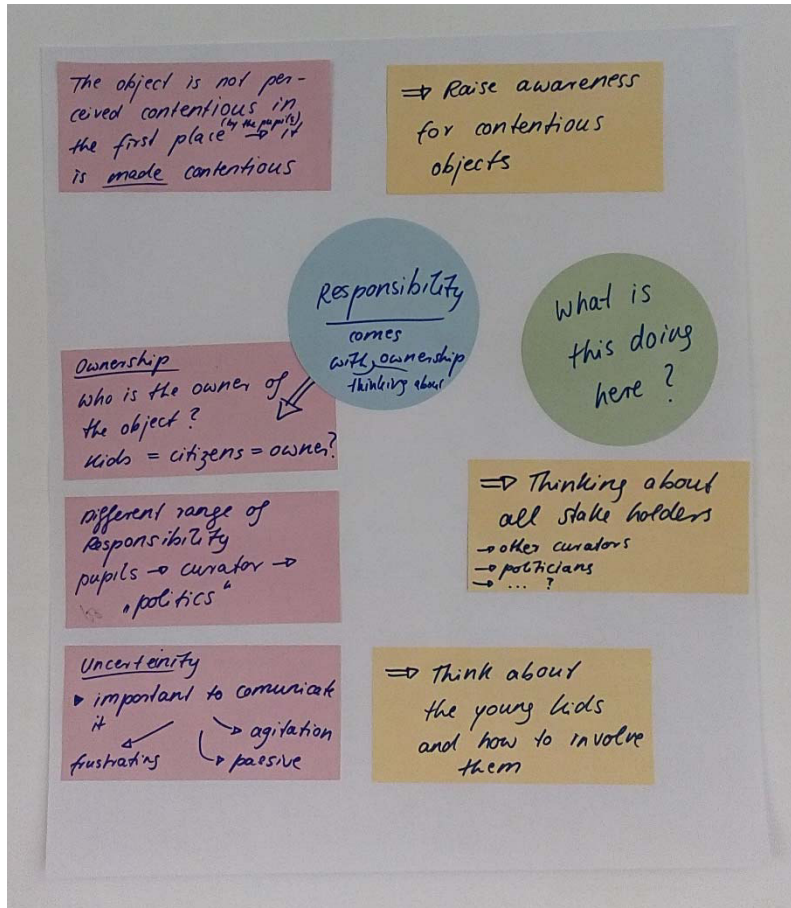 The object is not per-
ceived contentious in
the first place (by the pupils) → it
is made contentious
⇒ Raise awareness
for contentious
objects
Responsibility
comes
with ownership
thinking about
What is
this doing
here ?
Ownership
who is the owner of
the object ?
Kids = citizens = owner?
Different range of
Responsibility
pupils → curator →
„politics“
⇒ Thinking about
all stake holders
→ other curators
→ politicians
→ ... ?
Uncerteinity
▸ important to comunicate
it
→ agitation
frustrating
→ passive
⇒ Think about
the young kids
and how to involve
them